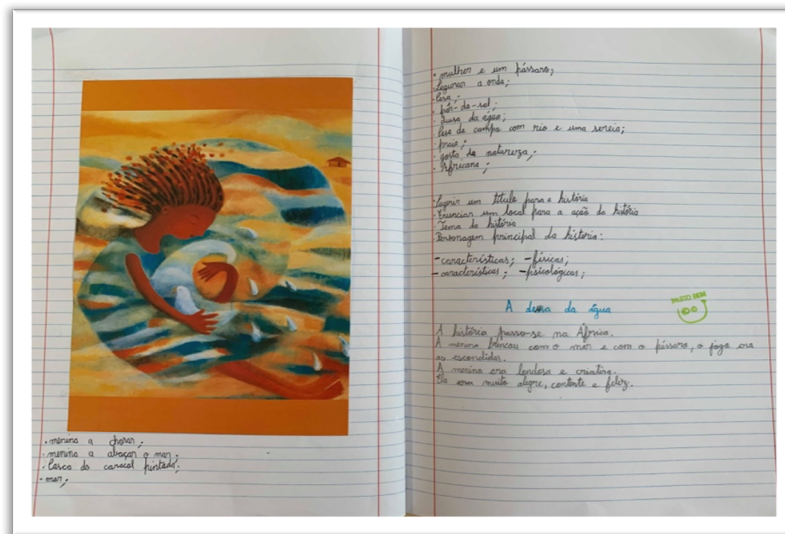 • menina a chorar;
• menina a abraçar o mar;
• Casca do caracol pintada;
- mar;
• mulher e um pássaro;
• Segurar a onda;
• Casa;
• pôr-do-sol;
• deusa da água;
• Casa de campo com rio e uma sereia;
• praia;
• gosta da natureza;
• Africana;
- Sugerir um título para a história
- Enunciar um local para a ação da história
Tema da história
Personagem principal da história:
- características; - físicas;
- características; - psicológicas;
A deusa da água
MUITO BEM
A história passa-se na África.
A menina brincou com o mar e com o pássaro, o jogo era
as escondidas.
A menina era bondosa e criativa.
Ela era muito alegre, contente e feliz.